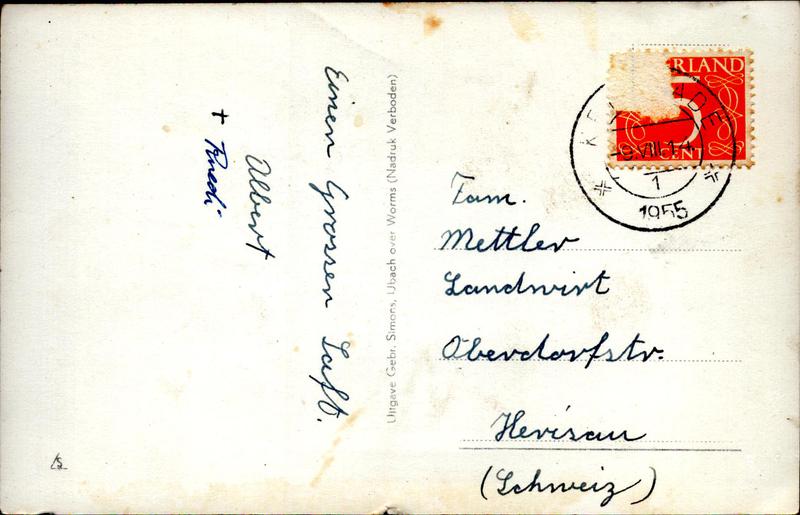 Einen Grossen Saft.
Albert
+ Ruedi
Uitgave Gebr. Simons, Ubach over Worms (Nadruk Verboden)
ERLAND
5
CENT
-9.VIII.14
1
1955
Fam.
Mettler
Landwirt
Oberdorfstr.
Herisau
(Schweiz)